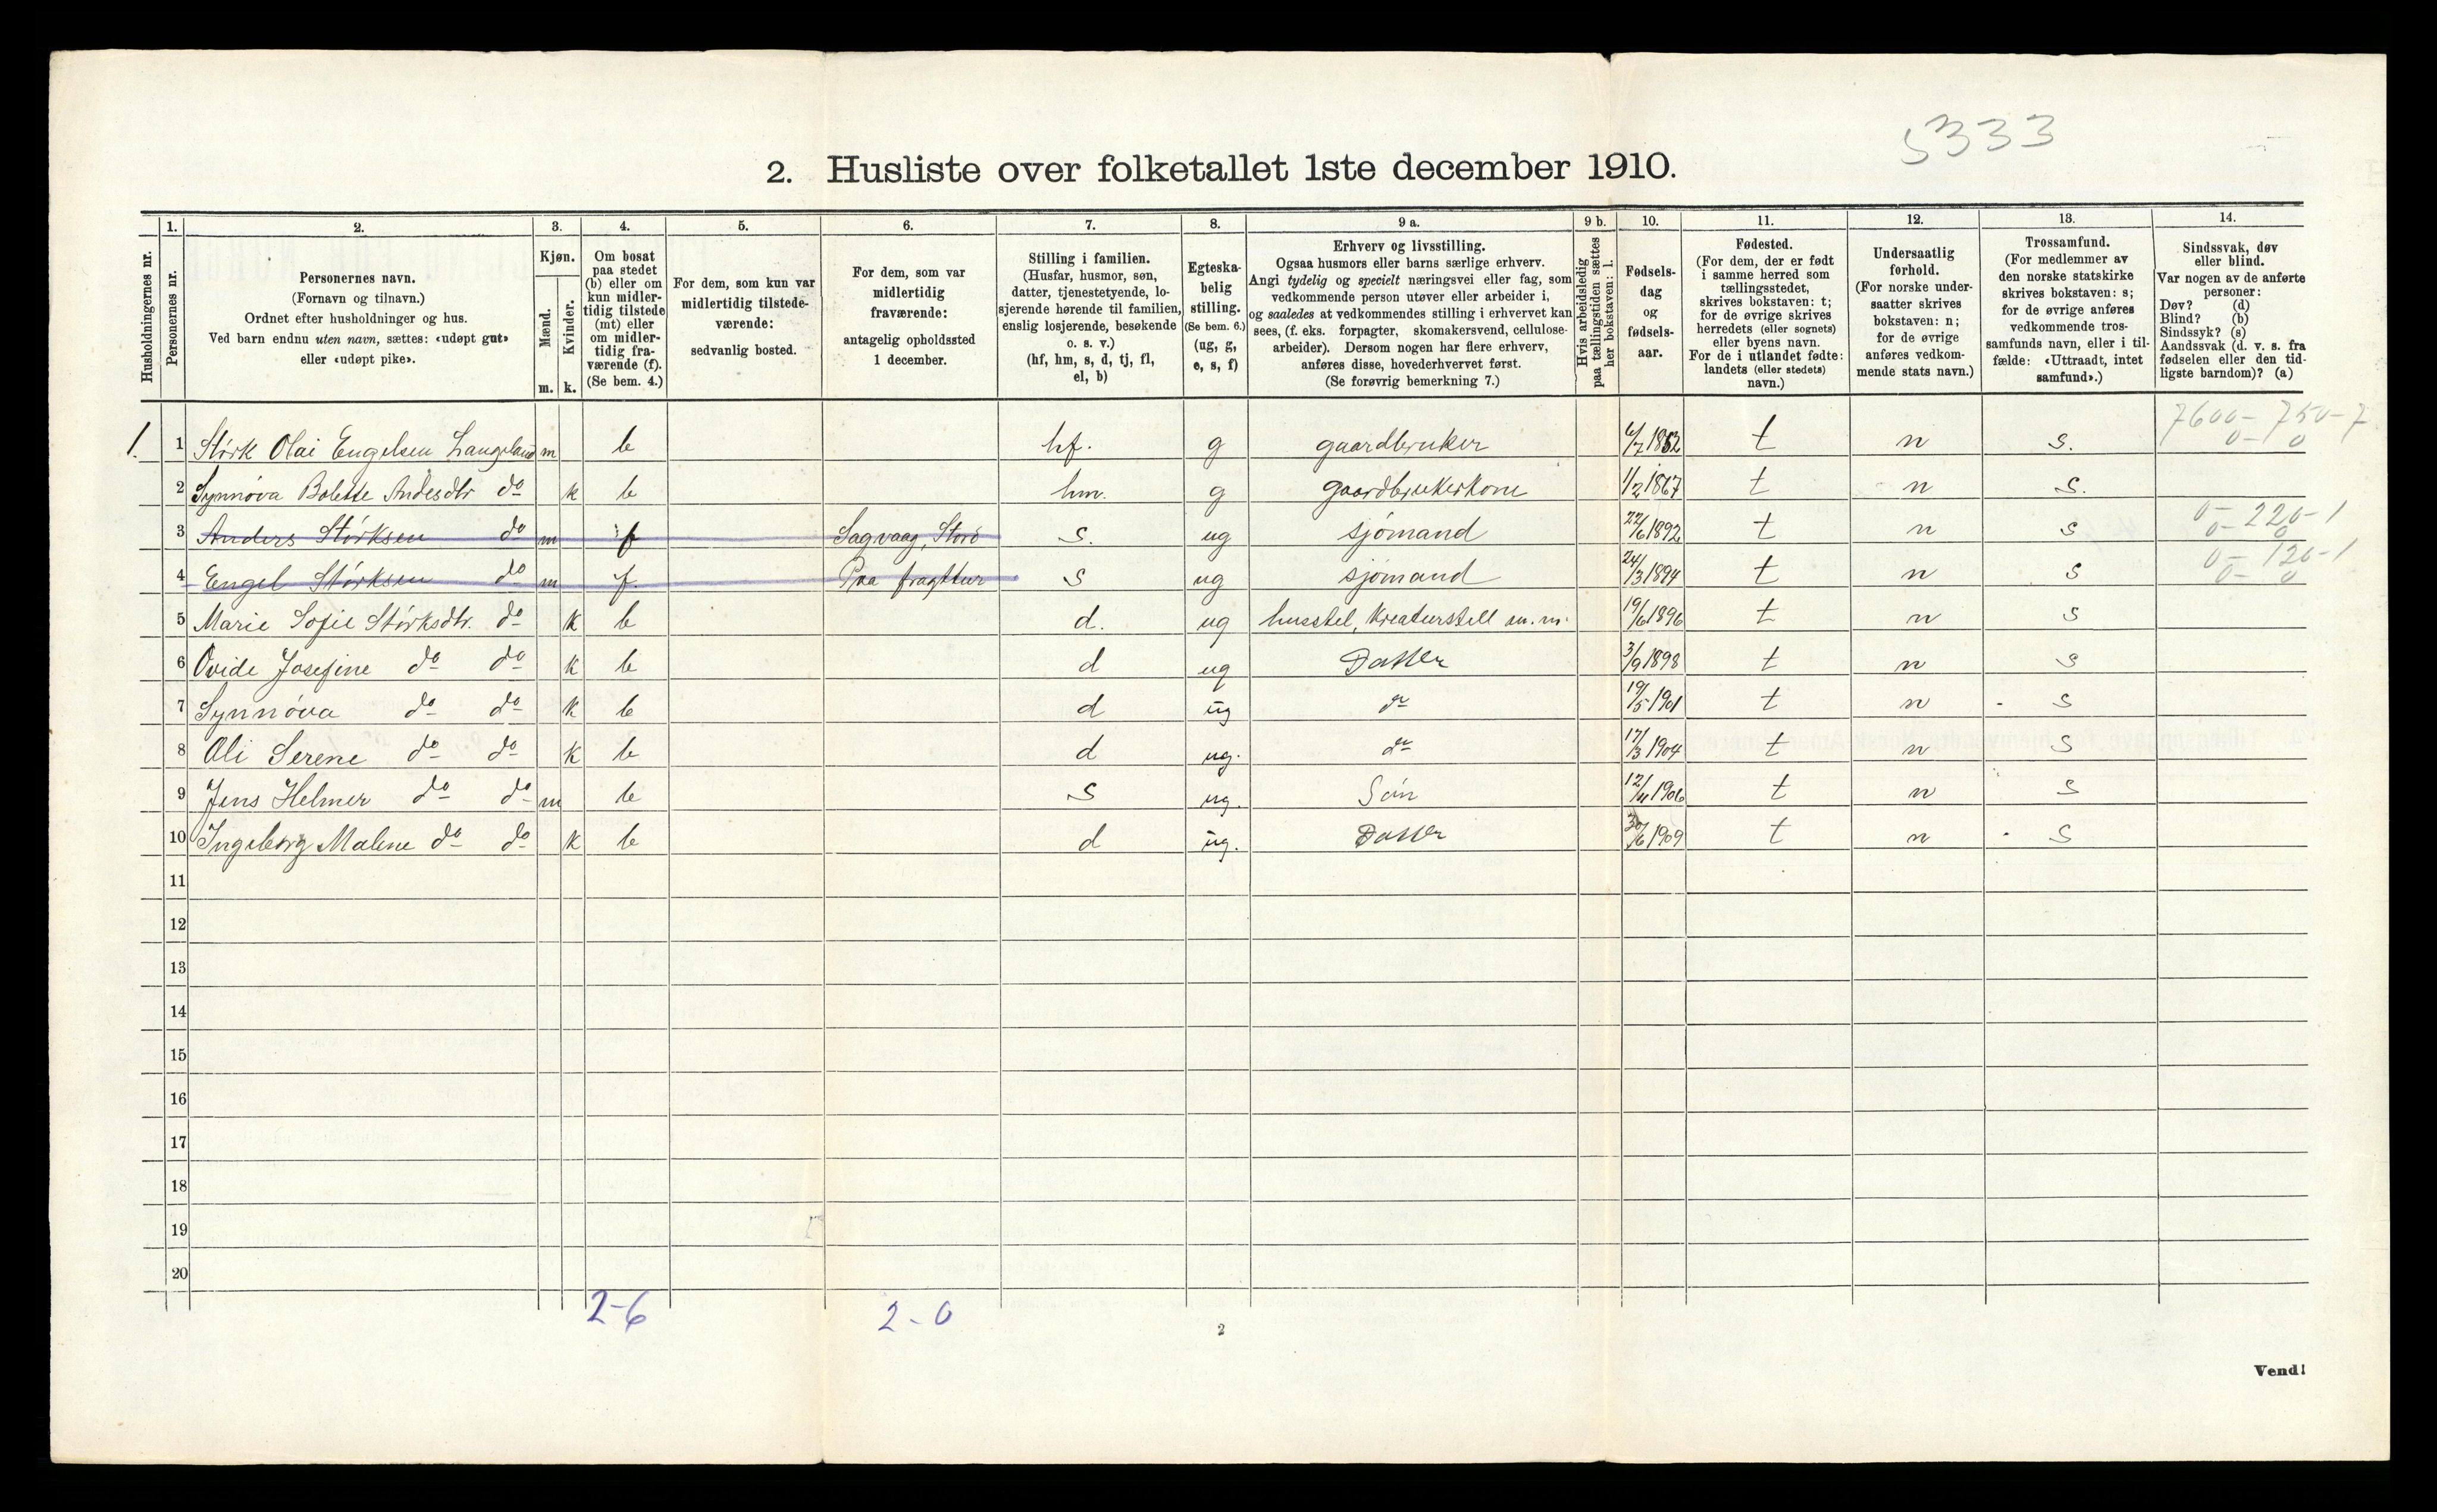 5333
2. Husliste over folketallet 1ste december 1910.
Husholdningernes nr.
1.
Personernes nr.
2.
Personernes navn.
(Fornavn og tilnavn.)
Ordnet efter husholdninger og hus.
Ved barn endnu uten navn, sættes: «udøpt gut»
eller «udøpt pike».
3.
Kjøn.
Mænd.
Kvinder.
m. k.
4.
Om bosat
paa stedet
(b) eller om
kun midler-
tidig tilstede
(mt) eller
om midler-
tidig fra-
værende (f).
(Se bem. 4.)
5.
For dem, som kun var
midlertidig tilstede-
værende:
sedvanlig bosted.
6.
For dem, som var
midlertidig
fraværende:
antagelig opholdssted
1 december.
7.
Stilling i familien.
(Husfar, husmor, søn,
datter, tjenestetyende, lo-
sjerende hørende til familien,
enslig losjerende, besøkende
o. s. v.)
(hf, hm, s, d, tj, fl,
el, b)
8.
Egteska-
belig
stilling.
(Se bem. 6.)
(ug, g,
e, s, f)
9 a.
Erhverv og livsstilling.
Ogsaa husmors eller barns særlige erhverv.
Angi tydelig og specielt næringsvei eller fag, som
vedkommende person utøver eller arbeider i,
og saaledes at vedkommendes stilling i erhvervet kan
sees, (f. eks. forpagter, skomakersvend, cellulose-
arbeider). Dersom nogen har flere erhverv,
anføres disse, hovederhvervet først.
(Se forøvrig bemerkning 7.)
9 b.
Hvis arbeidsledig
paa tællingstiden sættes
her bokstaven: l.
10.
Fødsels-
dag
og
fødsels-
aar.
11.
Fødested.
(For dem, der er født
i samme herred som
tællingsstedet,
skrives bokstaven: t;
for de øvrige skrives
herredets (eller sognets)
eller byens navn.
For de i utlandet fødte:
landets (eller stedets)
navn.)
12.
Undersaatlig
forhold.
(For norske under-
saatter skrives
bokstaven: n;
for de øvrige
anføres vedkom-
mende stats navn.)
13.
Trossamfund.
(For medlemmer av
den norske statskirke
skrives bokstaven: s;
for de øvrige anføres
vedkommende tros-
samfunds navn, eller i til-
fælde: «Uttraadt, intet
samfund».)
14.
Sindssvak, døv
eller blind.
Var nogen av de anførte
personer:
Døv? (d)
Blind? (b)
Sindssyk? (s)
Aandssvak (d. v. s. fra
fødselen eller den tid-
ligste barndom)? (a)
1. 1 Størk Olai Engelsen Langeland m b hf. g gaardbruker 4/7 1852 t n s. 7600 - 750 - 7 0 - 0
2 Synnøva Bolette Andesdtr do k b hm. g gaardbrukerkone 1/2 1867 t n s.
3 Anders Størksen do m f Sagvaag, Stord s. ug sjømand 22/6 1892 t n s 0 - 220 - 1 0 - 0
4 Engel Størksen do m f Paa fragttur s ug sjømand 24/3 1894 t n s 0 - 120 - 1 0 - 0
5 Marie Sofie Størksdtr. do k b d. ug husstel, kreaturstell m.m. 19/6 1896 t n s
6 Ovide Josefine do do k b d ug Datter 3/9 1898 t n s
7 Synnøva do do k b d ug do 19/5 1901 t n s
8 Oli Serene do do k b d ug. do 17/3 1904 t n s
9 Jens Helmer do do m b s ug. Søn 12/11 1906 t n s
10 Ingeborg Malene do do k b d ug. Datter 30/6 1909 t n s
11
12
13
14
15
16
17
18
19
20
2-6
2-0
2
Vend!